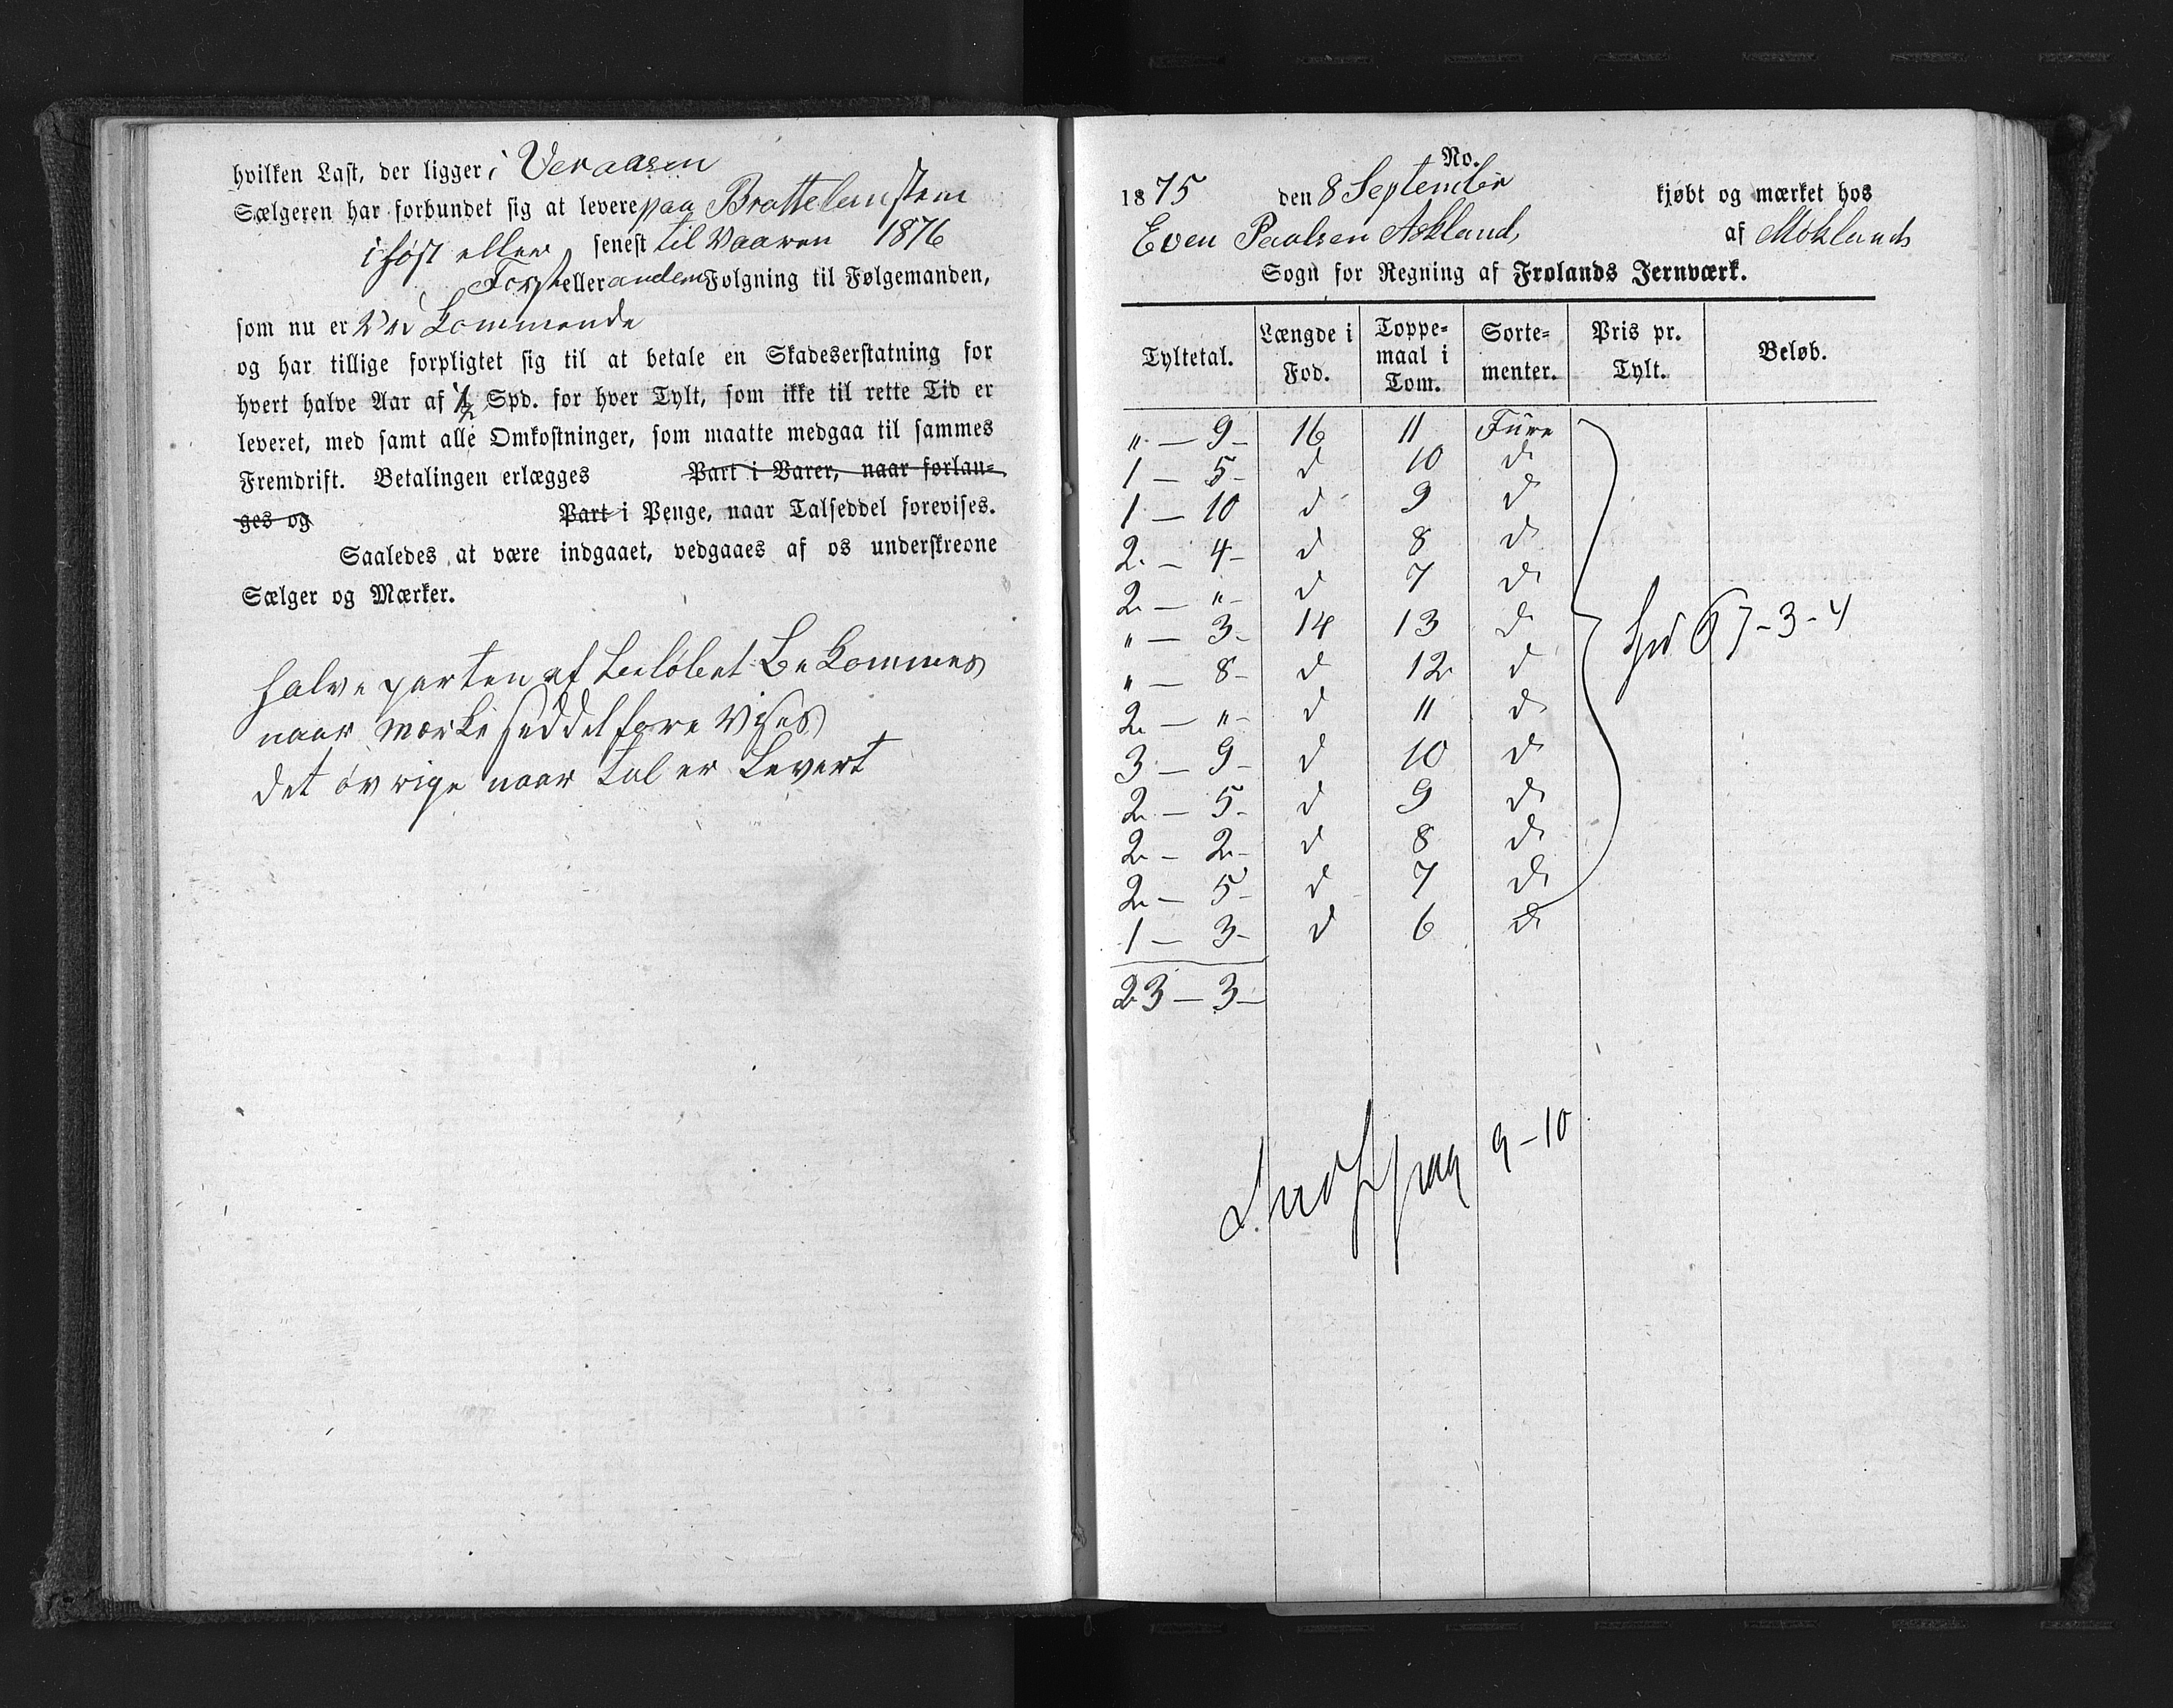 hvilken Last, der ligger i Veraasen
Sælgeren har forbundet sig at levere paa Brattelandstem
i høst eller senest til Vaaren 1876
Først eller anden Følgning til Følgemanden,
som nu er Ved Kommende
og har tillige forpligtet sig til at betale en Skadeserstatning for
hvert halve Aar af 1/2 Spd. for hver Tylt, som ikke til rette Tid er
leveret, med samt alle Omkostninger, som maatte medgaa til sammes
Fremdrift. Betalingen erlægges Part i Varer, naar forlan-
ges og Part i Penge, naar Talseddel forevises.
Saaledes at være indgaaet, vedgaaes af os underskrevne
Sælger og Mærker.
halve parten af beløbet Bekommes
naar mærke seddel fore vises
det øvrige naar tal er Levert
No.
1875 den 8 September kjøbt og mærket hos
Even Paulsen Askland, af Møklands
Sogn for Regning af Frolands Jernværk.
Tyltetal. Længde i Fod. Toppe-maal i Tom. Sorte-menter. Pris pr. Tylt. Beløb.
" — 9 — 16 11 Furu
1 — 5 — d 10 do
1 — 10 d 9 do
2 — 4 — d 8 do
2 — " — d 7 do
" — 3 — 14 13 do
" — 8 — d 12 d
2 — " — d 11 do
3 — 9 — d 10 do
2 — 5 — d 9 do
2 — 2 — d 8 do
2 — 5 — d 7 do
1 — 3 — d 6 do
Spd 67-3-4
23 — 3 —
9-10